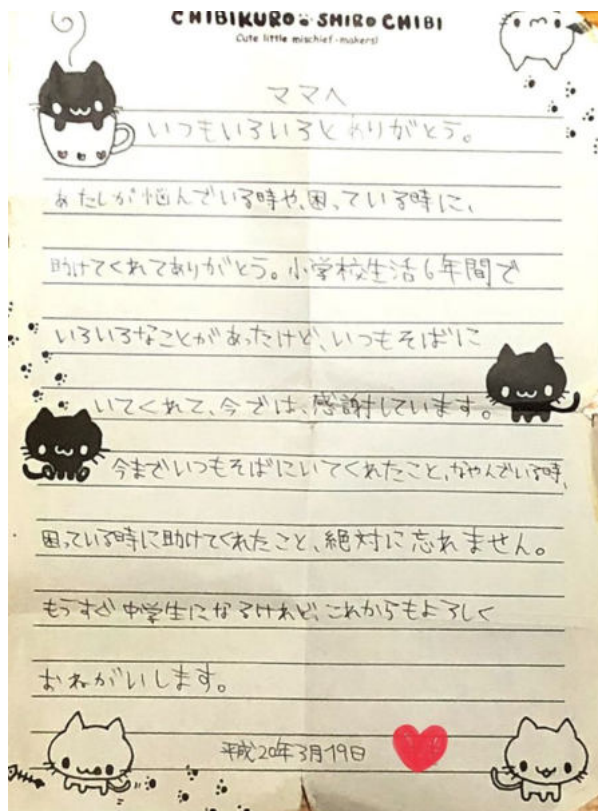 CHIBIKURO & SHIRO CHIBI
Cute little mischief-makers!
ママへ
いつもいろいろとありがとう。
あたしが悩んでいる時や、困っている時に、
助けてくれてありがとう。小学校生活6年間で
いろいろなことがあったけど、いつもそばに
いてくれて、今では、感謝しています。
今までいつもそばにいてくれたこと、なやんでいる時、
困っている時に助けてくれたこと、絶対に忘れません。
もうすぐ中学生になるけれど、これからもよろしく
おねがいします。
平成20年3月19日